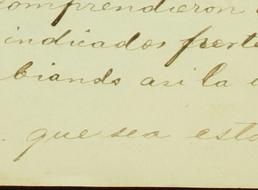 comprendieron
indicados
biando asi la
que sea esto